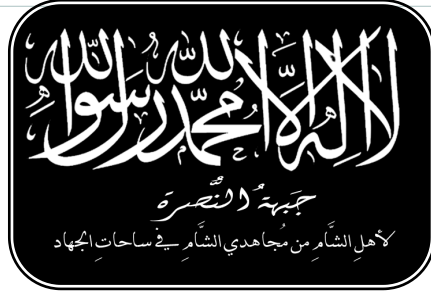 لا إله إلا الله محمد رسول الله
جَبهَةُ النُّصرَة
لأهلِ الشَّامِ من مُجاهدي الشَّامِ في ساحاتِ الجهاد